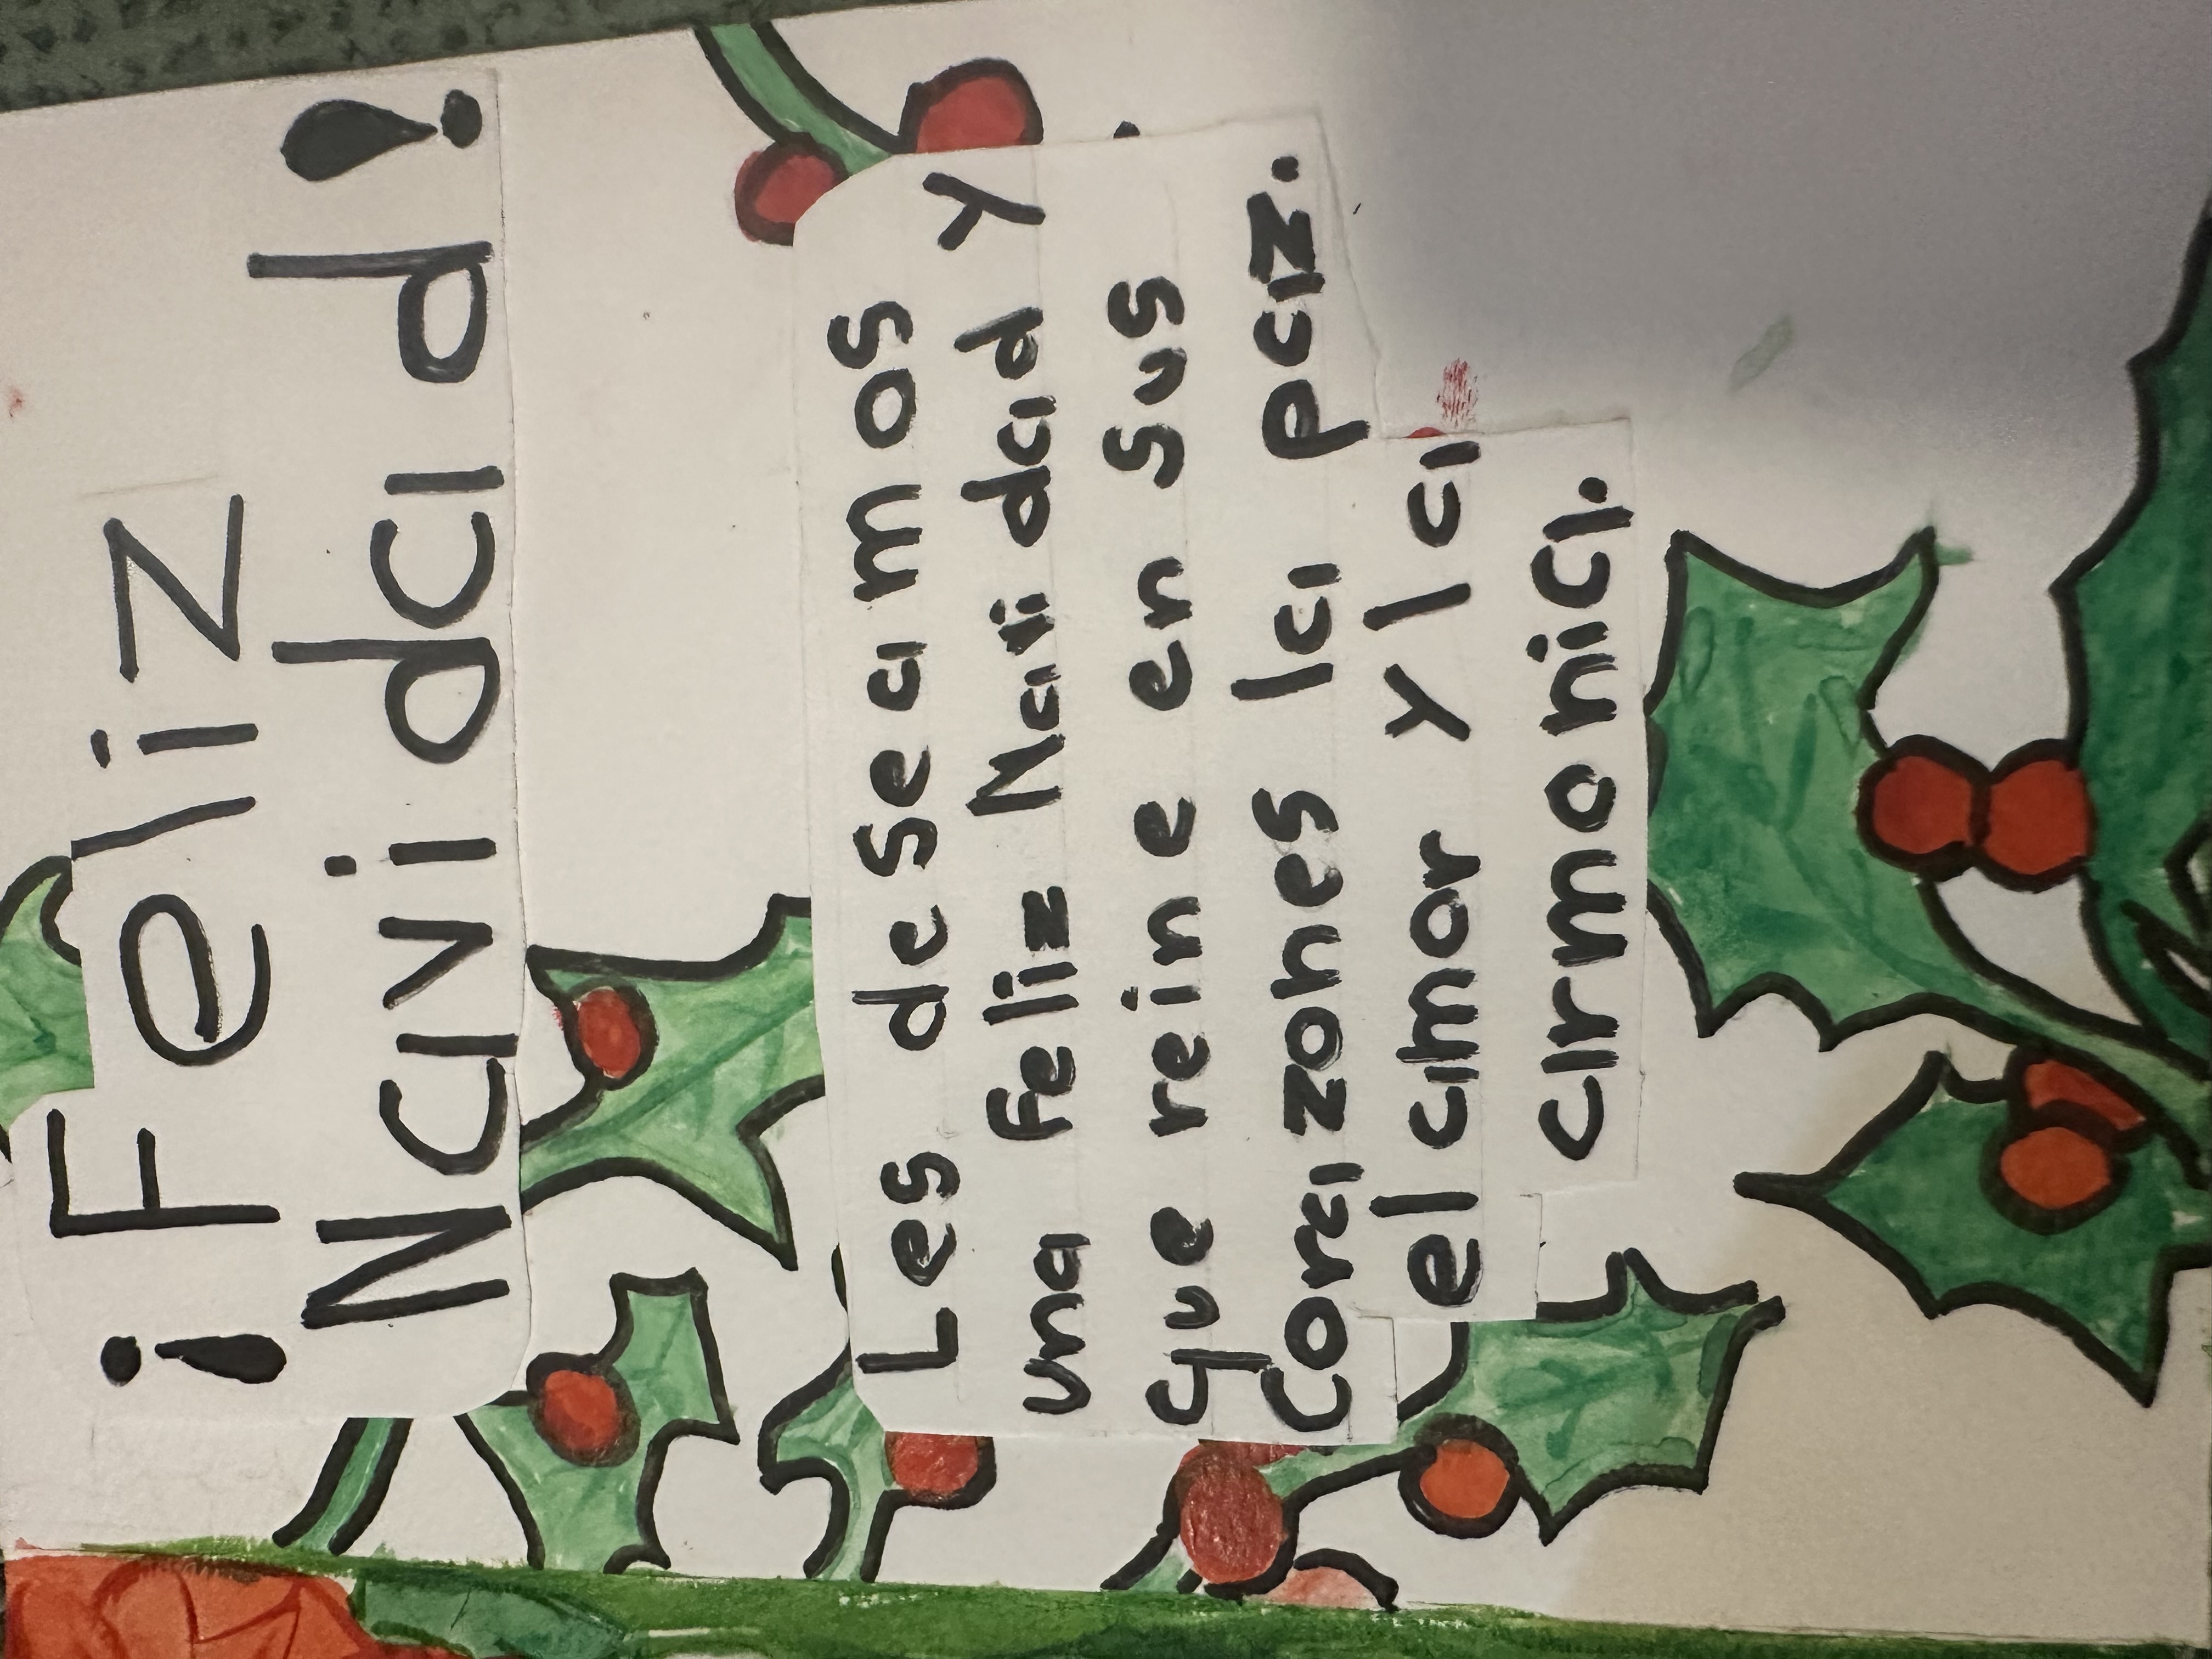 ¡Feliz
Navidad!
Les deseamos
una feliz Navidad y
que reine en sus
corazones la paz.
el amor y la
armonia.